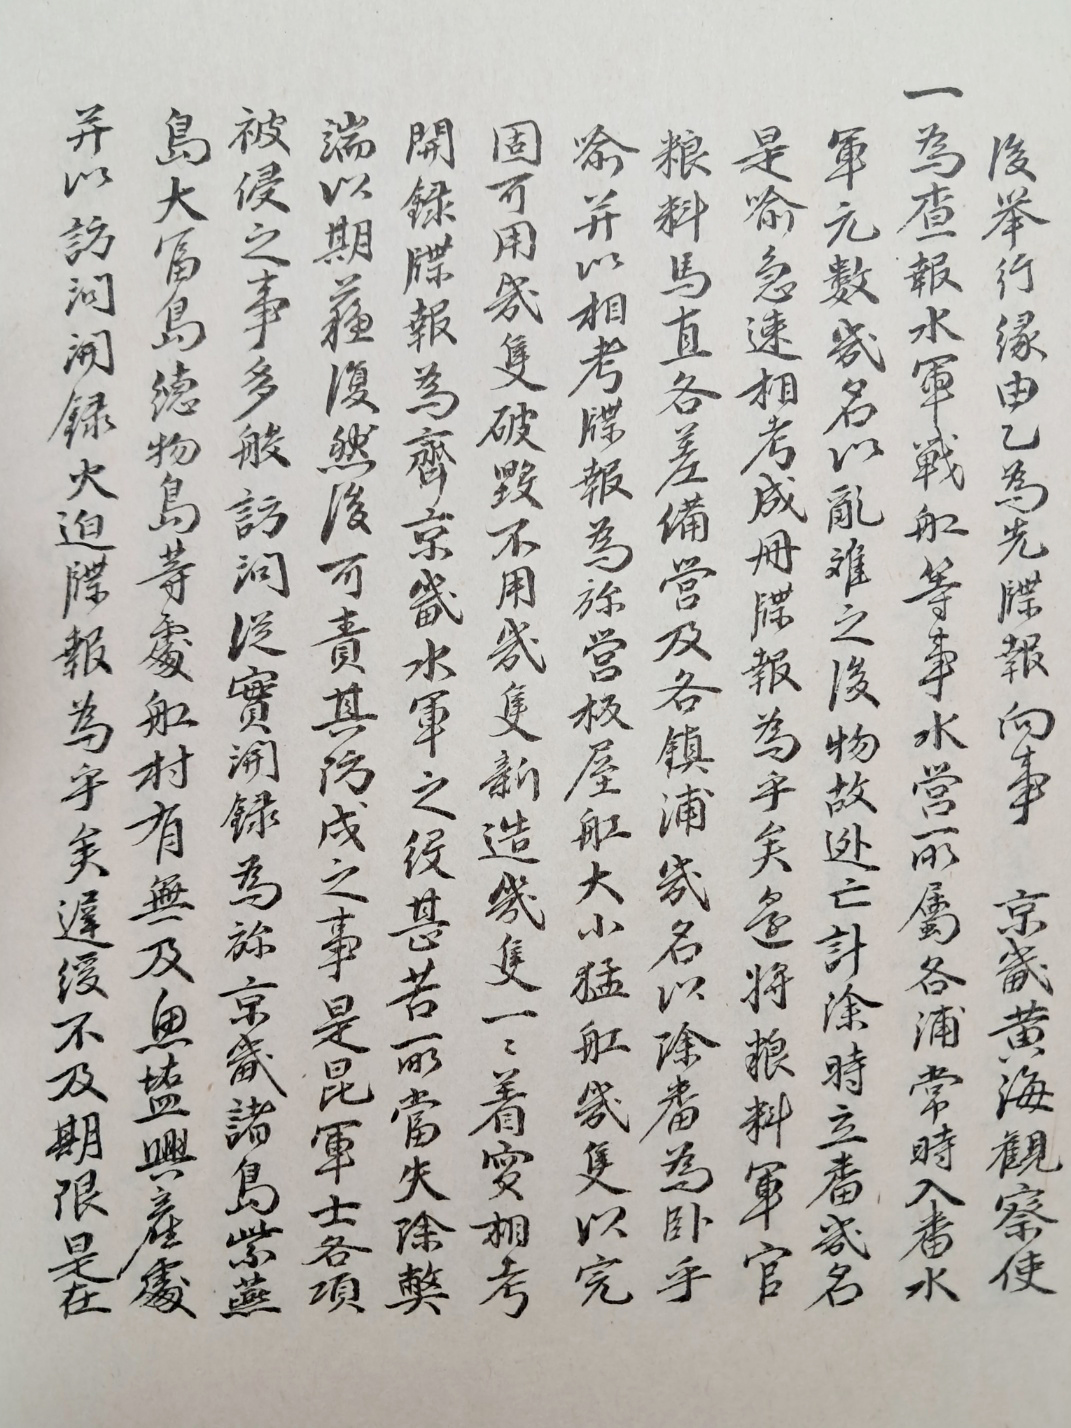 後举行縁由乙為先牒報向事　京畿黄海観察使
一為查報水軍戦舡等事水营所属各浦常時入番水
軍元数幾名以乱难之後物故逃亡計除時立番幾名
是喻急速相考成册牒報為乎矣邑将粮料軍官
粮料馬直各差備营及各鎮浦幾名以除番為卧乎
喻并以相考牒報為旀营板屋舡大小猛舡幾隻以完
固可用幾隻破毀不用幾隻新造幾隻一〻着署相考
開録牒報為齊京畿水軍之役甚苦所當失除弊
端以期蘓復然後可責其防戍之事是昆軍士各項
被侵之事多般訪问従實開録為旀京畿諸島紫燕
島大冨島德物島等處舡村有無及魚塩興産處
并以訪问開録火迫牒報為乎矣遅緩不及期限是在